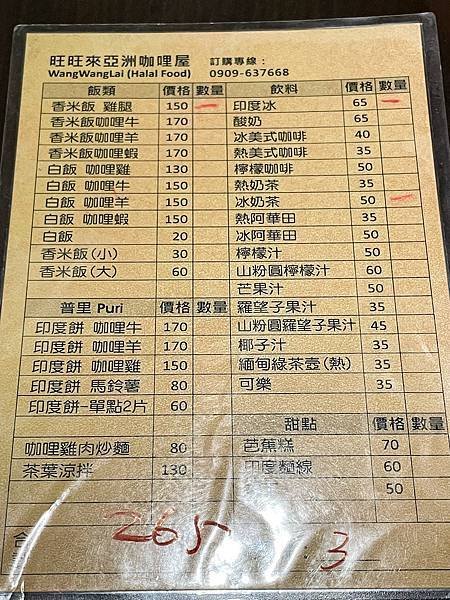 旺旺來亞洲咖哩屋 訂購專線：
WangWangLai (Halal Food) 0909-637668
飯類 價格 數量 飲料 價格 數量
香米飯 雞腿 150 印度冰 65
香米飯咖哩牛 170 酸奶 65
香米飯咖哩羊 170 冰美式咖啡 40
香米飯咖哩蝦 170 熱美式咖啡 35
白飯 咖哩雞 130 檸檬咖啡 50
白飯 咖哩牛 150 熱奶茶 35
白飯 咖哩羊 150 冰奶茶 50
白飯 咖哩蝦 150 熱阿華田 35
白飯 20 冰阿華田 50
香米飯(小) 30 檸檬汁 50
香米飯(大) 60 山粉圓檸檬汁 60
芒果汁 50
普里 Puri 價格 數量 羅望子果汁 35
印度餅 咖哩牛 170 山粉圓羅望子果汁 45
印度餅 咖哩羊 170 椰子汁 35
印度餅 咖哩雞 150 緬甸綠茶壺(熱) 35
印度餅 馬鈴薯 80 可樂 35
印度餅-單點2片 60
甜點 價格 數量
咖哩雞肉炒麵 80 芭蕉糕 70
茶葉涼拌 130 印度麵線 60
50
合 265 3